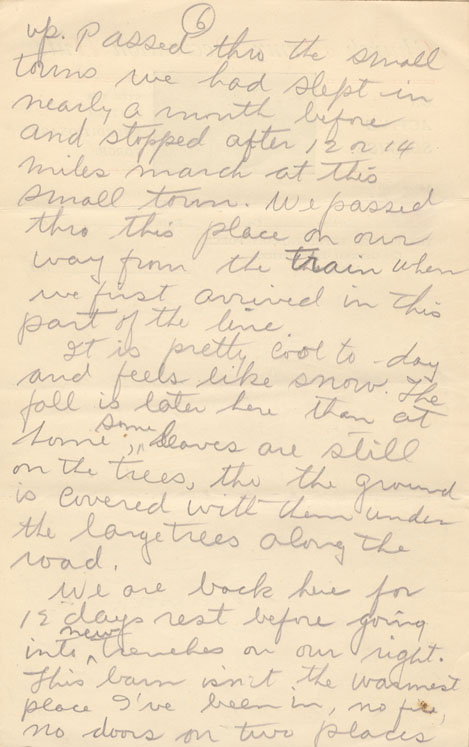 6
up. Passed thro the small
towns we had slept in
nearly a month before
and stopped after 12 or 14
miles march at this
small town. We passed
thro this place on our
way from the train when
we first arrived in this
part of the line.
It is pretty cool to-day
and feels like snow. The
fall is later here than at
home, some leaves are still
on the trees, tho the ground
is covered with them under
the large trees along the
road.
We are back here for
12 days rest before going
into new trenches on our right.
This barn isn't the warmest
place I've been in, no fire,
no doors on two places